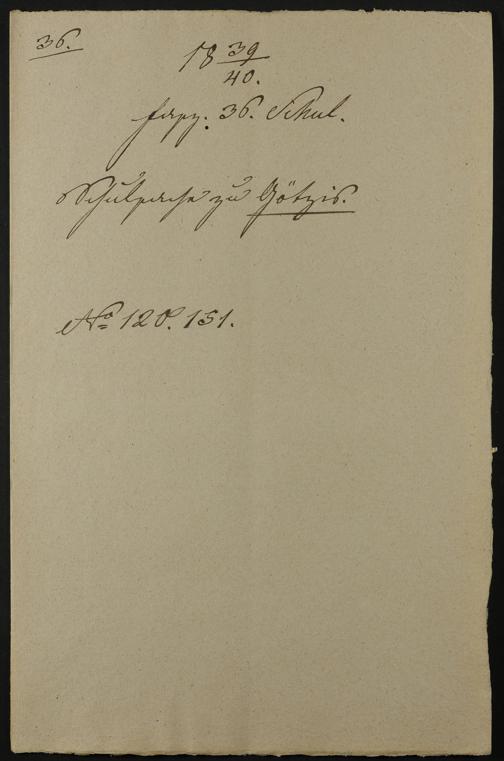 36.
18 39/40.
fasz. 36. Schul.
Schulsache zu Götzis.
No 120. 151.